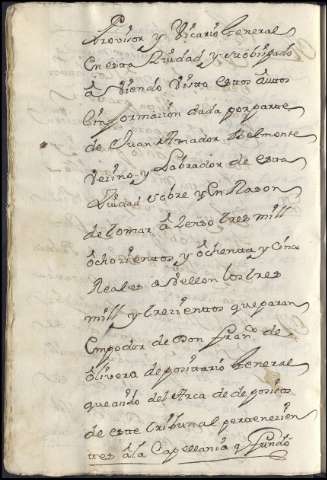 Provisor y Vicario General
en esta Ciudad y su obispado
aviendo visto estos autos
e Ynformazion dada por parte
de Juan Amador Belmonte
vecino y Labrador de esta
Ciudad sobre y en Razon
de tomar a zenso tres mill
ochozientos y ochenta y cinco
Reales Vellon los tres
mill y trezientos que paran
en poder de Don Franco de
olivera depositario General
que a sido del Arca de depositos
de este tribunal pertenezien
tes a la Capellania q fundo